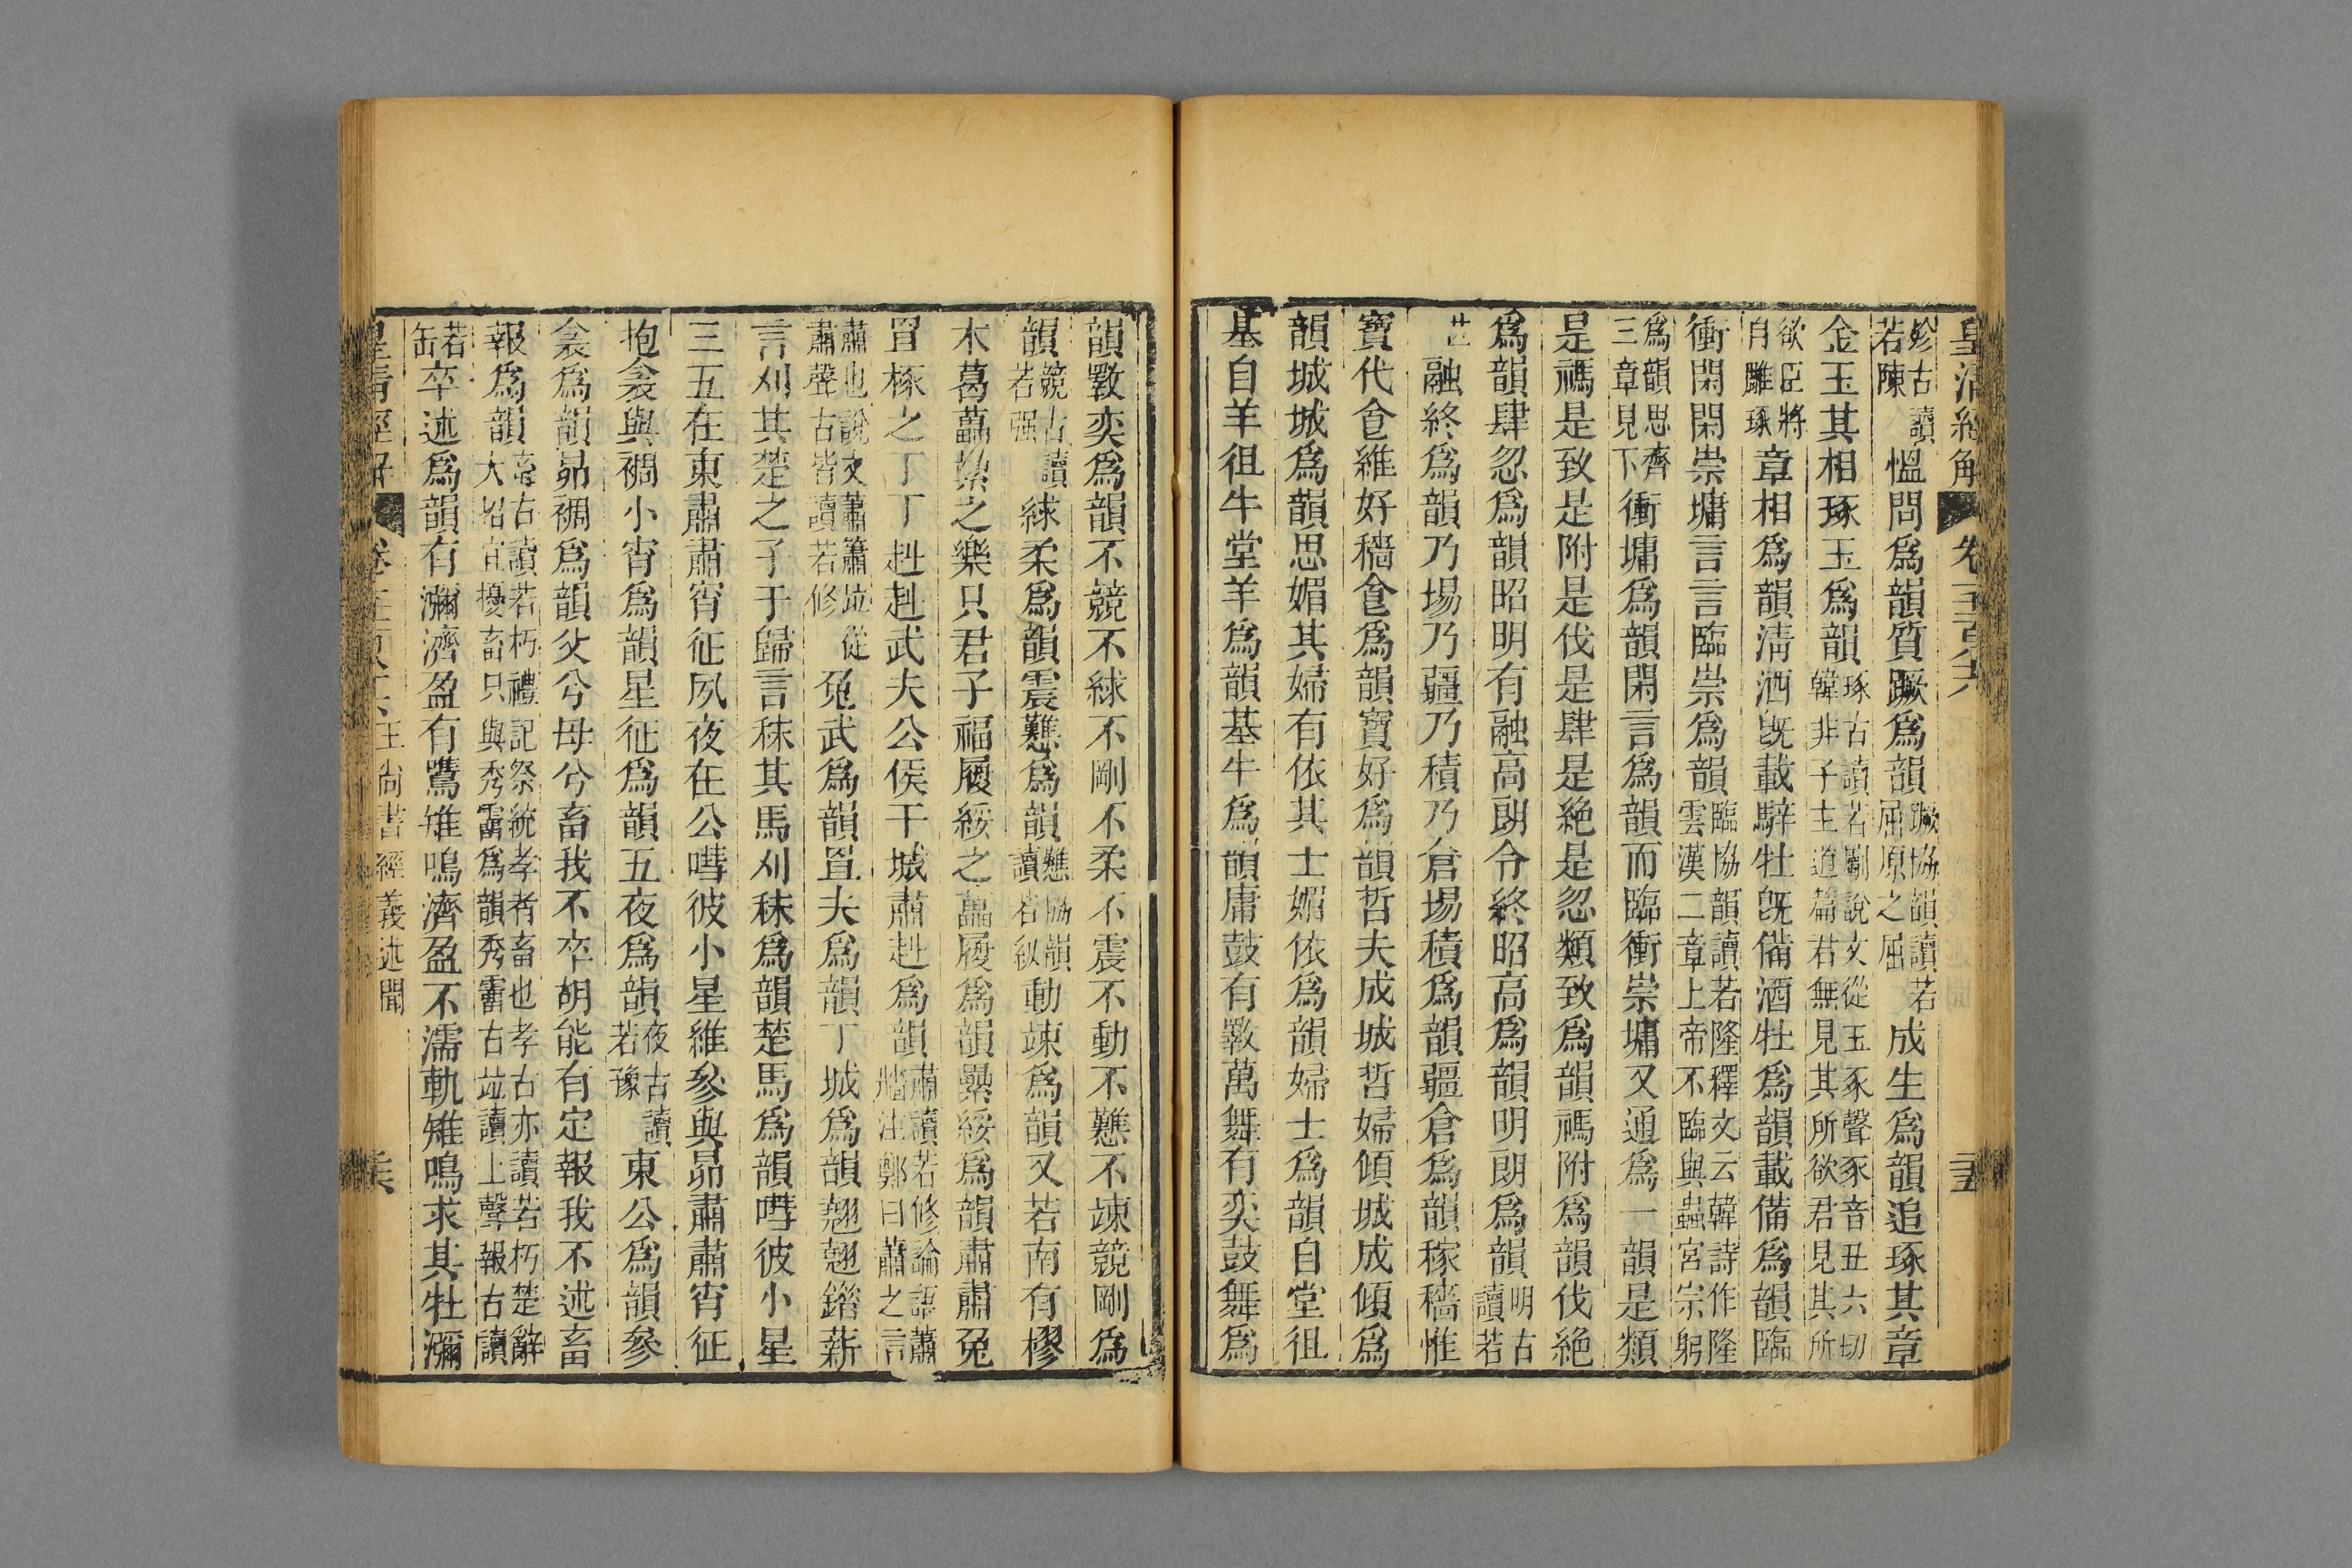 皇清經解 卷一千一百八十六 三五
殄古讀若陳慍問爲韻質蹶爲韻蹶協韻讀若屈原之屈成生爲韻追琢其章
金玉其相琢玉爲韻琢古讀若斸說文從玉豖聲豖音丑六切韓非子主道篇君無見其所欲君見其所
欲臣將自雕琢章相爲韻淸酒旣載騂牡旣備酒牡爲韻載備爲韻臨
衝閑閑崇墉言言臨崇爲韻臨協韻讀若隆釋文云韓詩作隆雲漢二章上帝不臨與蟲宮宗躬
爲韻思齊三章見下衝墉爲韻閑言爲韻而臨衝崇墉又通爲一韻是類
是禡是致是附是伐是肆是絶是忽類致爲韻禡附爲韻伐絶
爲韻肆忽爲韻昭明有融高朗令終昭高爲韻明朗爲韻明古讀若
芒融終爲韻乃埸乃疆乃積乃倉埸積爲韻疆倉爲韻稼穡惟
寶代食維好穡食爲韻寶好爲韻哲夫成城哲婦傾城成傾爲
韻城城爲韻思媚其婦有依其士媚依爲韻婦士爲韻自堂徂
基自羊徂牛堂羊爲韻基牛爲韻庸鼓有斁萬舞有奕鼓舞爲
韻斁奕爲韻不競不絿不剛不柔不震不動不戁不竦競剛爲
韻競古讀若强絿柔爲韻震戁爲韻戁協韻讀若㣼動竦爲韻又若南有樛
木葛藟縈之樂只君子福履綏之藟履爲韻纍綏爲韻肅肅兔
罝椓之丁丁赳赳武夫公侯干城肅赳爲韻肅讀若修論語蕭牆注鄭曰蕭之言
肅也說文蕭簫竝從肅聲古皆讀若修兔武爲韻罝夫爲韻丁城爲韻翹翹錯薪
言刈其楚之子于歸言秣其馬刈秣爲韻楚馬爲韻嘒彼小星
三五在東肅肅宵征夙夜在公嘒彼小星維參與昴肅肅宵征
抱衾與裯小宵爲韻星征爲韻五夜爲韻夜古讀若豫東公爲韻參
衾爲韻昴裯爲韻父兮母兮畜我不卒胡能有定報我不述畜
報爲韻畜古讀若朽禮記祭統孝者畜也孝古亦讀若朽楚辭大招宜擾畜只與秀霤爲韻秀霤古竝讀上聲報古讀
若缶卒述爲韻有瀰濟盈有鷕雉鳴濟盈不濡軌雉鳴求其牡瀰
皇清經解 卷一千一百八十六 王尚書經義述聞 三六